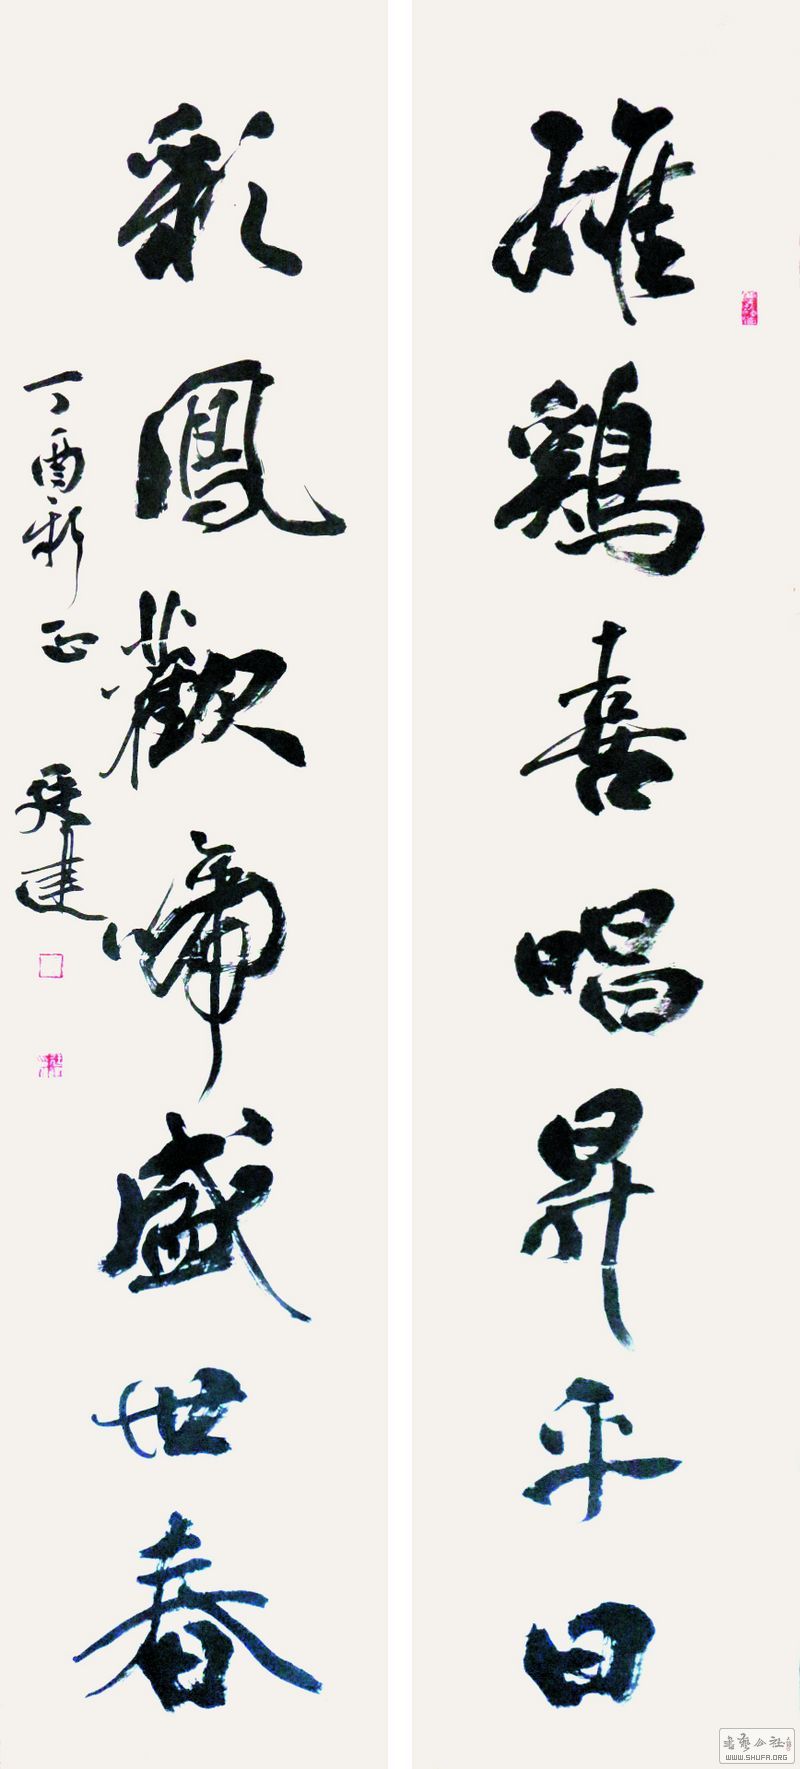 雄鷄喜唱昇平日
彩鳳歡啼盛世春
丁酉新正
建
書藝公社
WWW.SHUFA.ORG